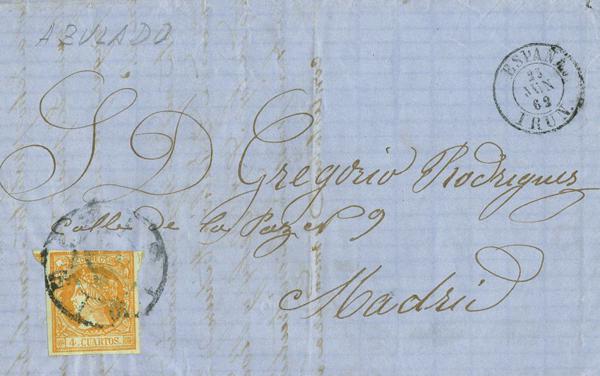 ABULADO
ESPAÑA
23
JUN
62
IRUN.
S D Gregorio Rodriguez
Calle de la Paz nº 9
Madrid
CORREOS
4 CUARTOS.